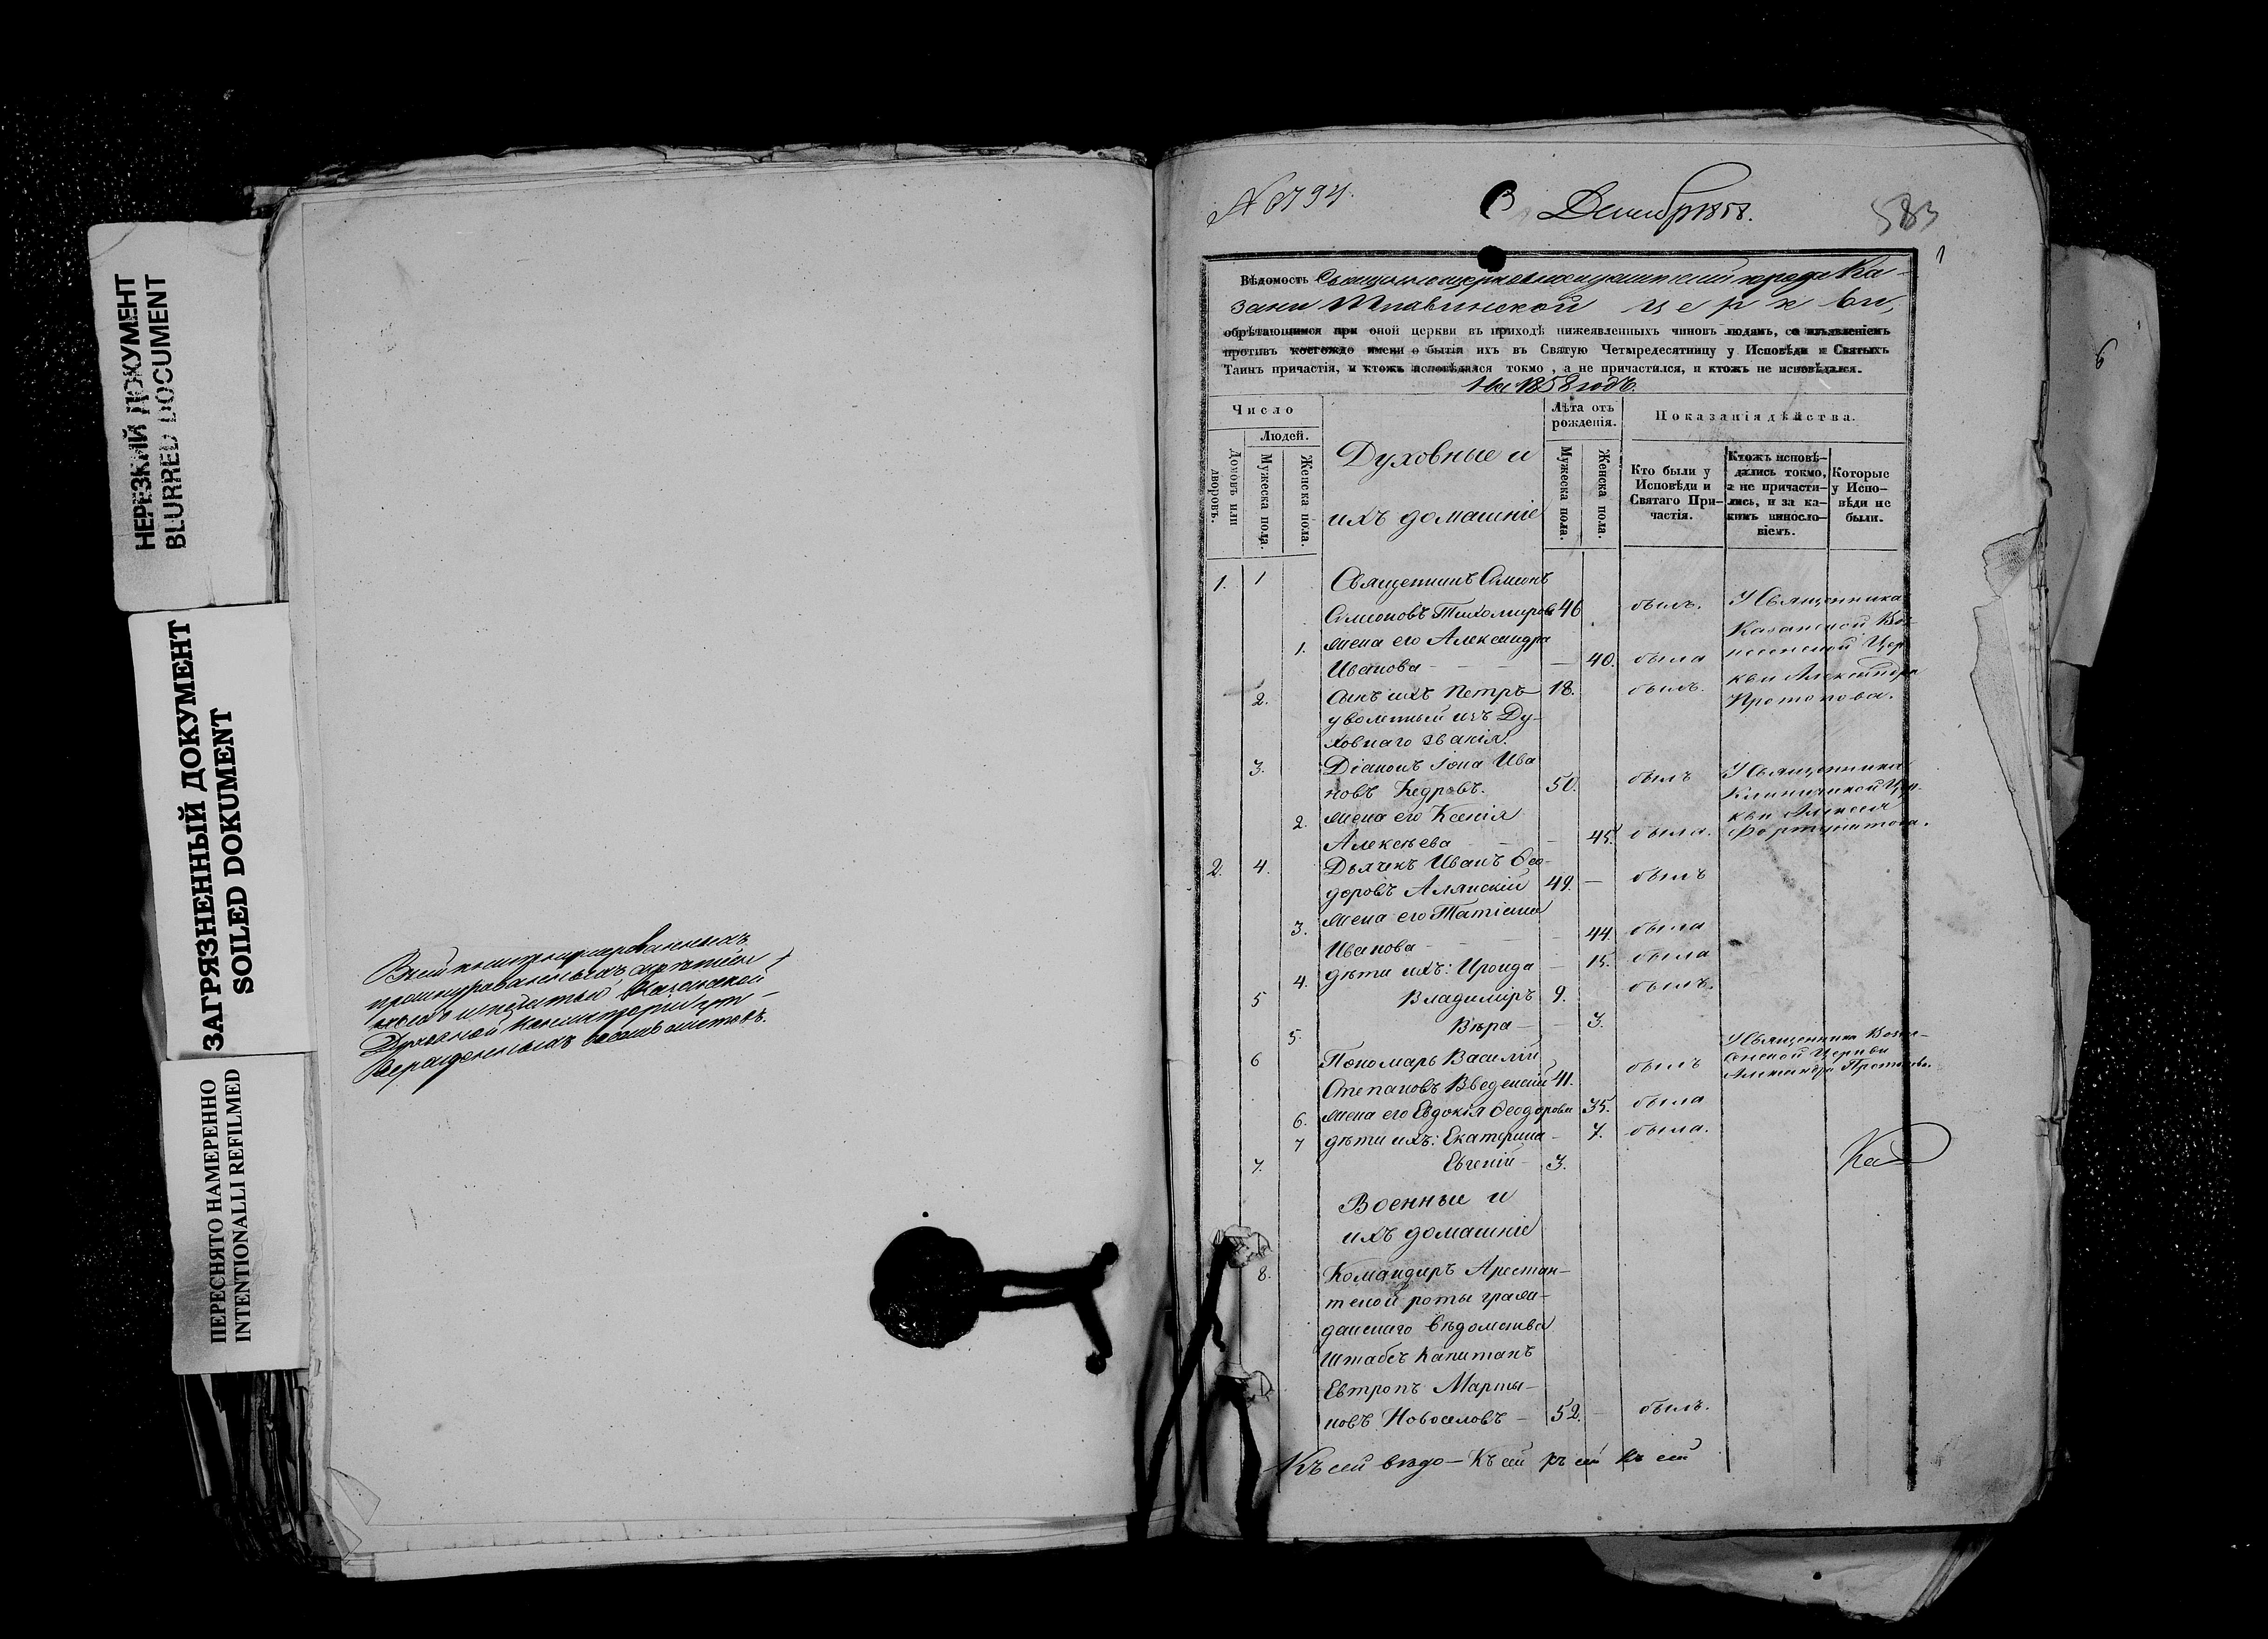 НЕРЕЗКИЙ ДОКУМЕНТ
BLURRED DOCUMENT
ЗАГРЯЗНЕННЫЙ ДОКУМЕНТ
SOILED DOKUMENT
ПЕРЕСНЯТО НАМЕРЕННО
INTENTIONALLI REFILMED
печатью Казанской
Духовной Консисторіи
листовъ.
583
1
6
Вѣдомость города Ка-
зани церкви,
обрѣтающимся при оной церкви въ приходѣ нижеявленныхъ чиновъ людямъ, со изъявленіемъ
противъ коегождо имени о бытіи ихъ въ Святую Четыредесятницу у Исповѣди и Святыхъ
Таинъ причастія, и ктожъ исповѣдался токмо, а не причастился, и ктожъ не исповѣдался.
На 1858 годъ.
Число
Людей.
Домовъ или дворовъ.
Мужеска пола.
Женска пола.
Духовные и
ихъ домашніе
Лѣта отъ рожденія.
Мужеска пола.
Женска пола.
Показанія дѣйства.
Кто были у Исповѣди и Святаго Причастія.
Ктожъ исповѣдались токмо, а не причастились, и за какимъ винословіемъ.
Которые у Исповѣди не были.
1. 1 Священникъ Симеонъ
Симеоновъ Тихомировъ 46 былъ. У Священника
1. жена его Александра Казанской Воз-
Иванова — 40. была несенской Цер
2. Сынъ ихъ Петръ 18. былъ. кви Александра
уволенный изъ Ду- Протопопова.
ховнаго званія.
3. Діаконъ Іона Ива
новъ Кедровъ. 50. былъ У Священника
2. жена его Ксенія кви Алексея
Алексѣева — 45. была. Фортунатова.
2. 4. Дьячекъ Иванъ Ѳео-
доровъ Алянскій 49. — былъ
3. жена его Татіана
Иванова — 44. была
4. дѣти ихъ: Ироида — 15. была
5 Владиміръ 9. былъ.
5. Вѣра — 3.
6 Пономарь Василій У Священника Возне-
Степановъ Введенскій 41. былъ сенской Церкви
6. жена его Евдокія Ѳеодорова 35. была
7 дѣти ихъ: Екатерина — 7. была.
7. Евгеній — 3.
Военные и
ихъ домашніе
8. Командиръ Арестан-
тской роты граж-
данскаго вѣдомства
Штабсъ Капитанъ
Евтропъ Марты-
новъ Новоселовъ — 52. — былъ.
Къ сей вѣдо— Къ сей къ сей къ сей